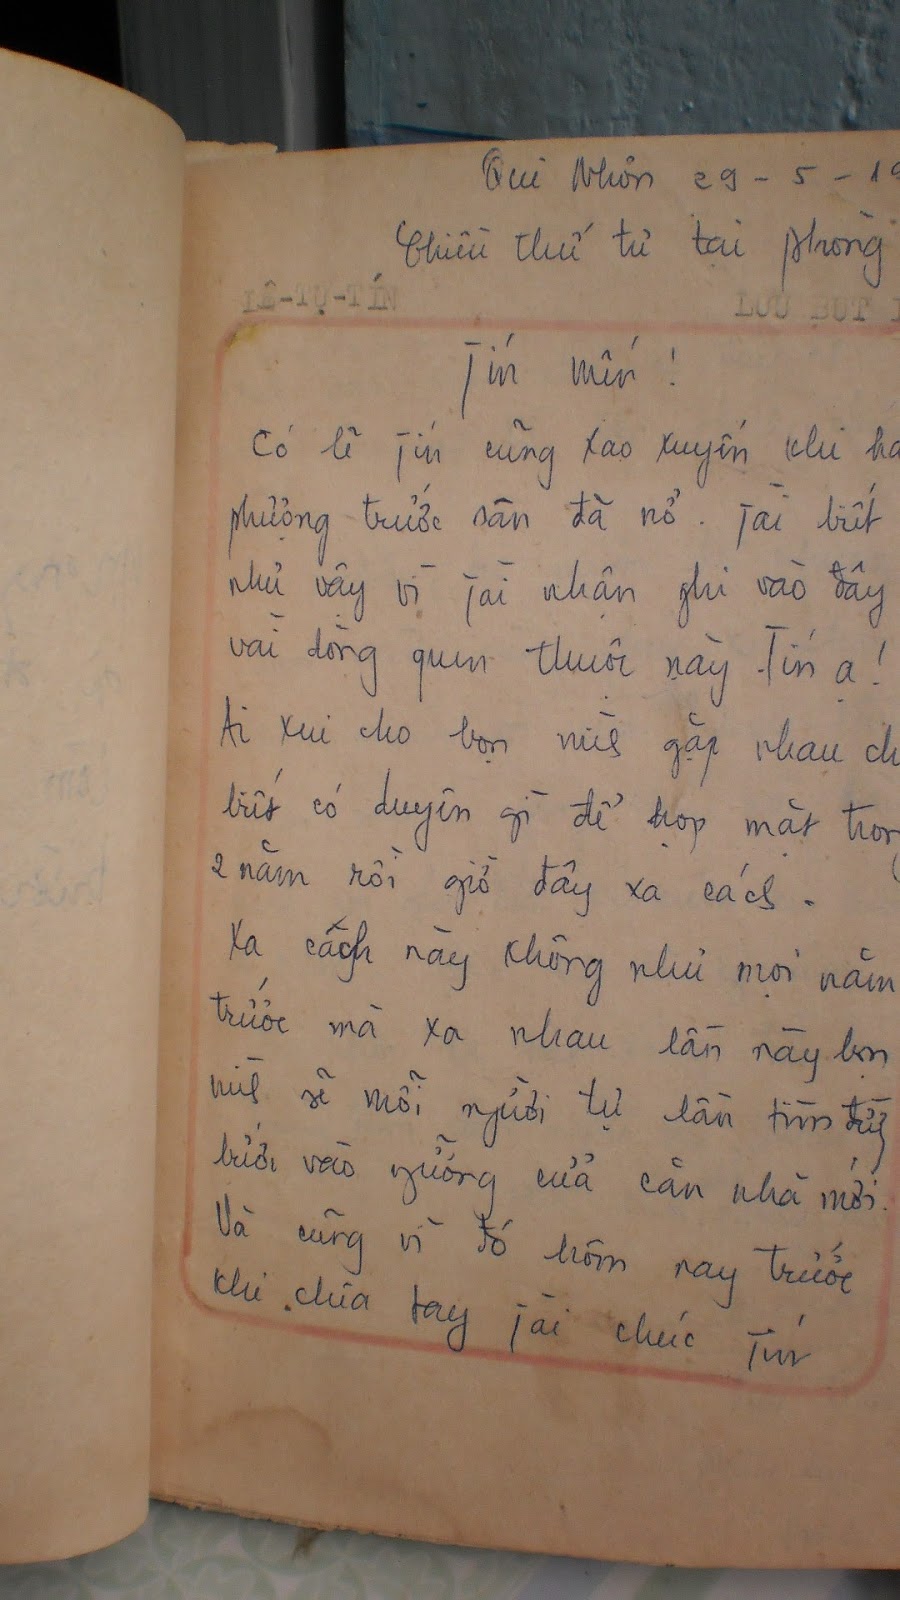 Qui Nhơn 29 - 5 - 19
Chiều thứ tư tại phòng
LÊ-TỰ-TÍN LƯU BÚT
Tín mến !
Có lẽ Tín cũng xao xuyến khi ho
phượng trước sân đã nở . Tài biết
như vậy vì Tài nhận ghi vào đây
vài dòng quen thuộc này Tín ạ !
Ai xui cho bọn mìs gặp nhau ch
biết có duyên gì để họp mặt tron
2 năm rồi giờ đây xa cács .
Xa cách này không như mọi năm
trước mà xa nhau lần này bọn
mìs sẽ mỗi người tự lần tìm đừs
bước vào ngưỡng cửa căn nhà mới.
Và cũng vì đó hôm nay trước
khi chia tay Tài chúc Tín